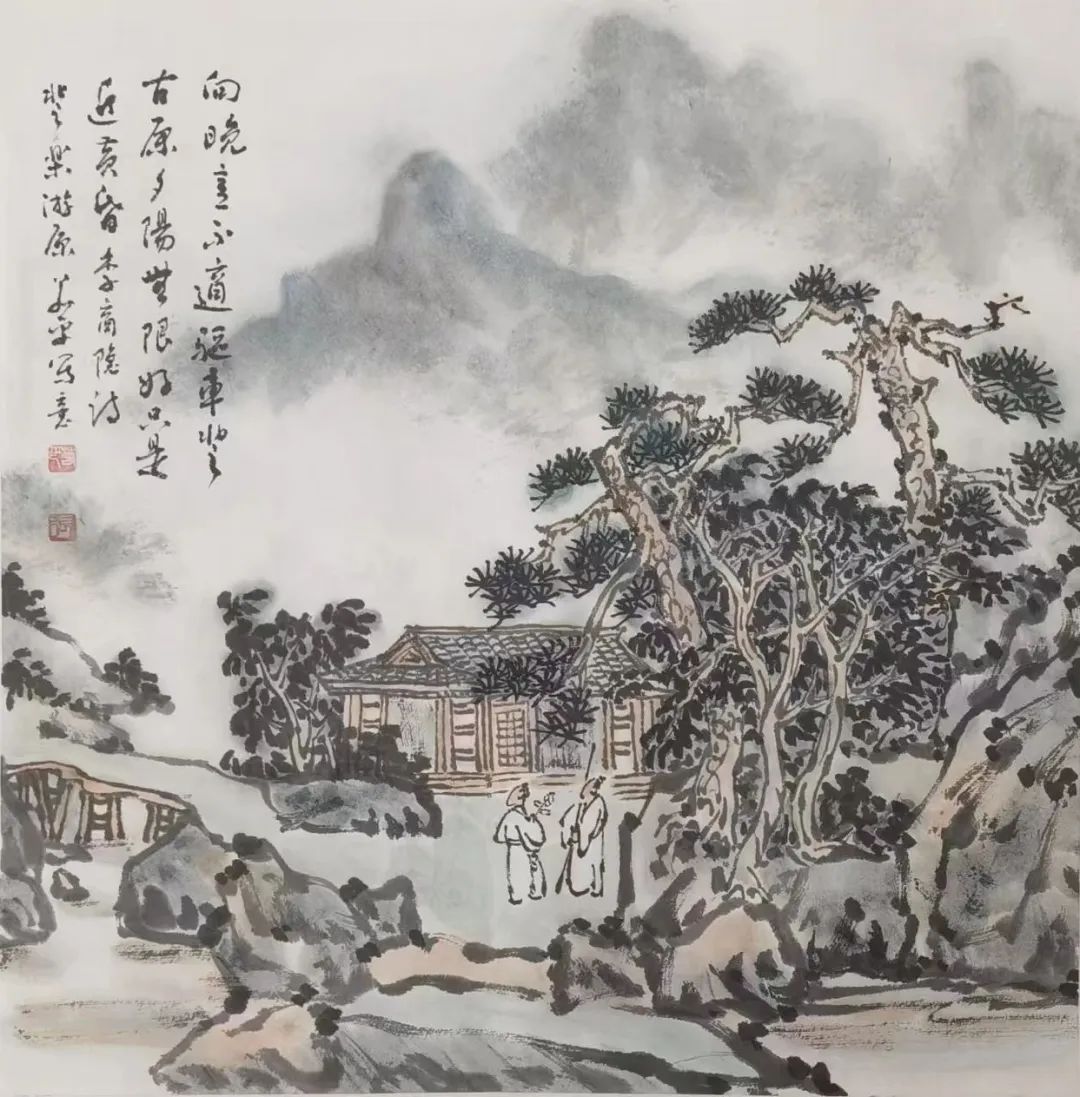 向晚意不適驅車登
古原夕陽無限好只是
近黃昏李商隱詩
登樂游原 写意